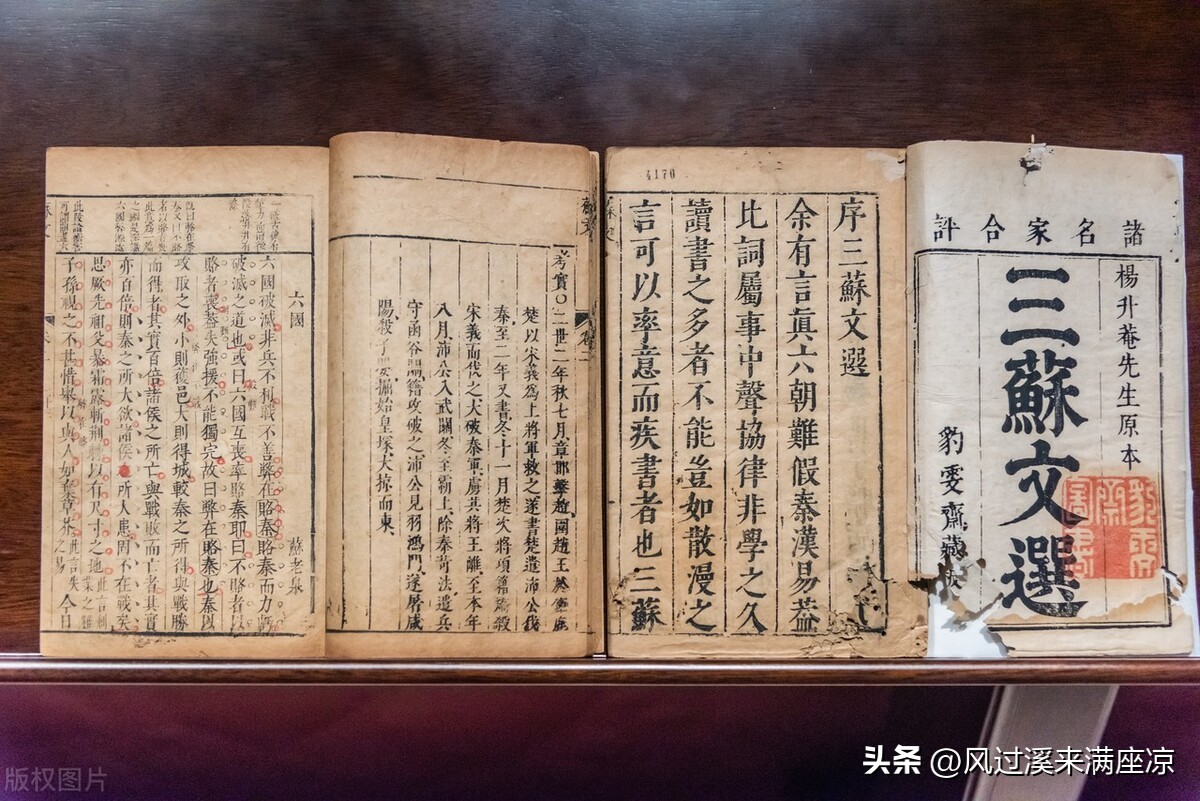 諸名家合評
楊升菴先生原本
三蘇文選
豹雯齋藏
4170
序三蘇文選
余有言眞六朝難假秦漢易蓋
比詞屬事中聲協律非學之久
讀書之多者不能豈如散漫之
言可以率意而疾書者也三蘇
考實○二世二年秋七月章邯擊趙圍趙王於鉅鹿
楚以宋義爲上將軍救之遂書楚遣沛公伐
秦至二年又書冬十一月楚次將項籍矯殺
宋義而代之大破秦軍虜其將王離至本年
八月沛公入武關冬至霸上除秦苛法遣兵
守函谷關籍攻破之沛公見羽鴻門遂屠咸
陽殺子嬰掘始皇塚大掠而東
六國
蘇老泉
六國破滅非兵不利戰不善弊在賂秦賂秦而力虧
破滅之道也或曰六國互喪率賂秦耶曰不賂者以
賂者喪蓋失強援不能獨完故曰弊在賂秦也秦以
攻取之外小則獲邑大則得城較秦之所得與戰勝
而得者其實百倍諸侯之所亡與戰敗而亡者其實
亦百倍則秦之所大欲諸侯所大患固不在戰矣
思厥先祖父暴霜露斬荊棘以有尺寸之地
子孫視之不甚惜舉以與人如棄草芥今日
版权图片
头条 @风过溪来满座凉